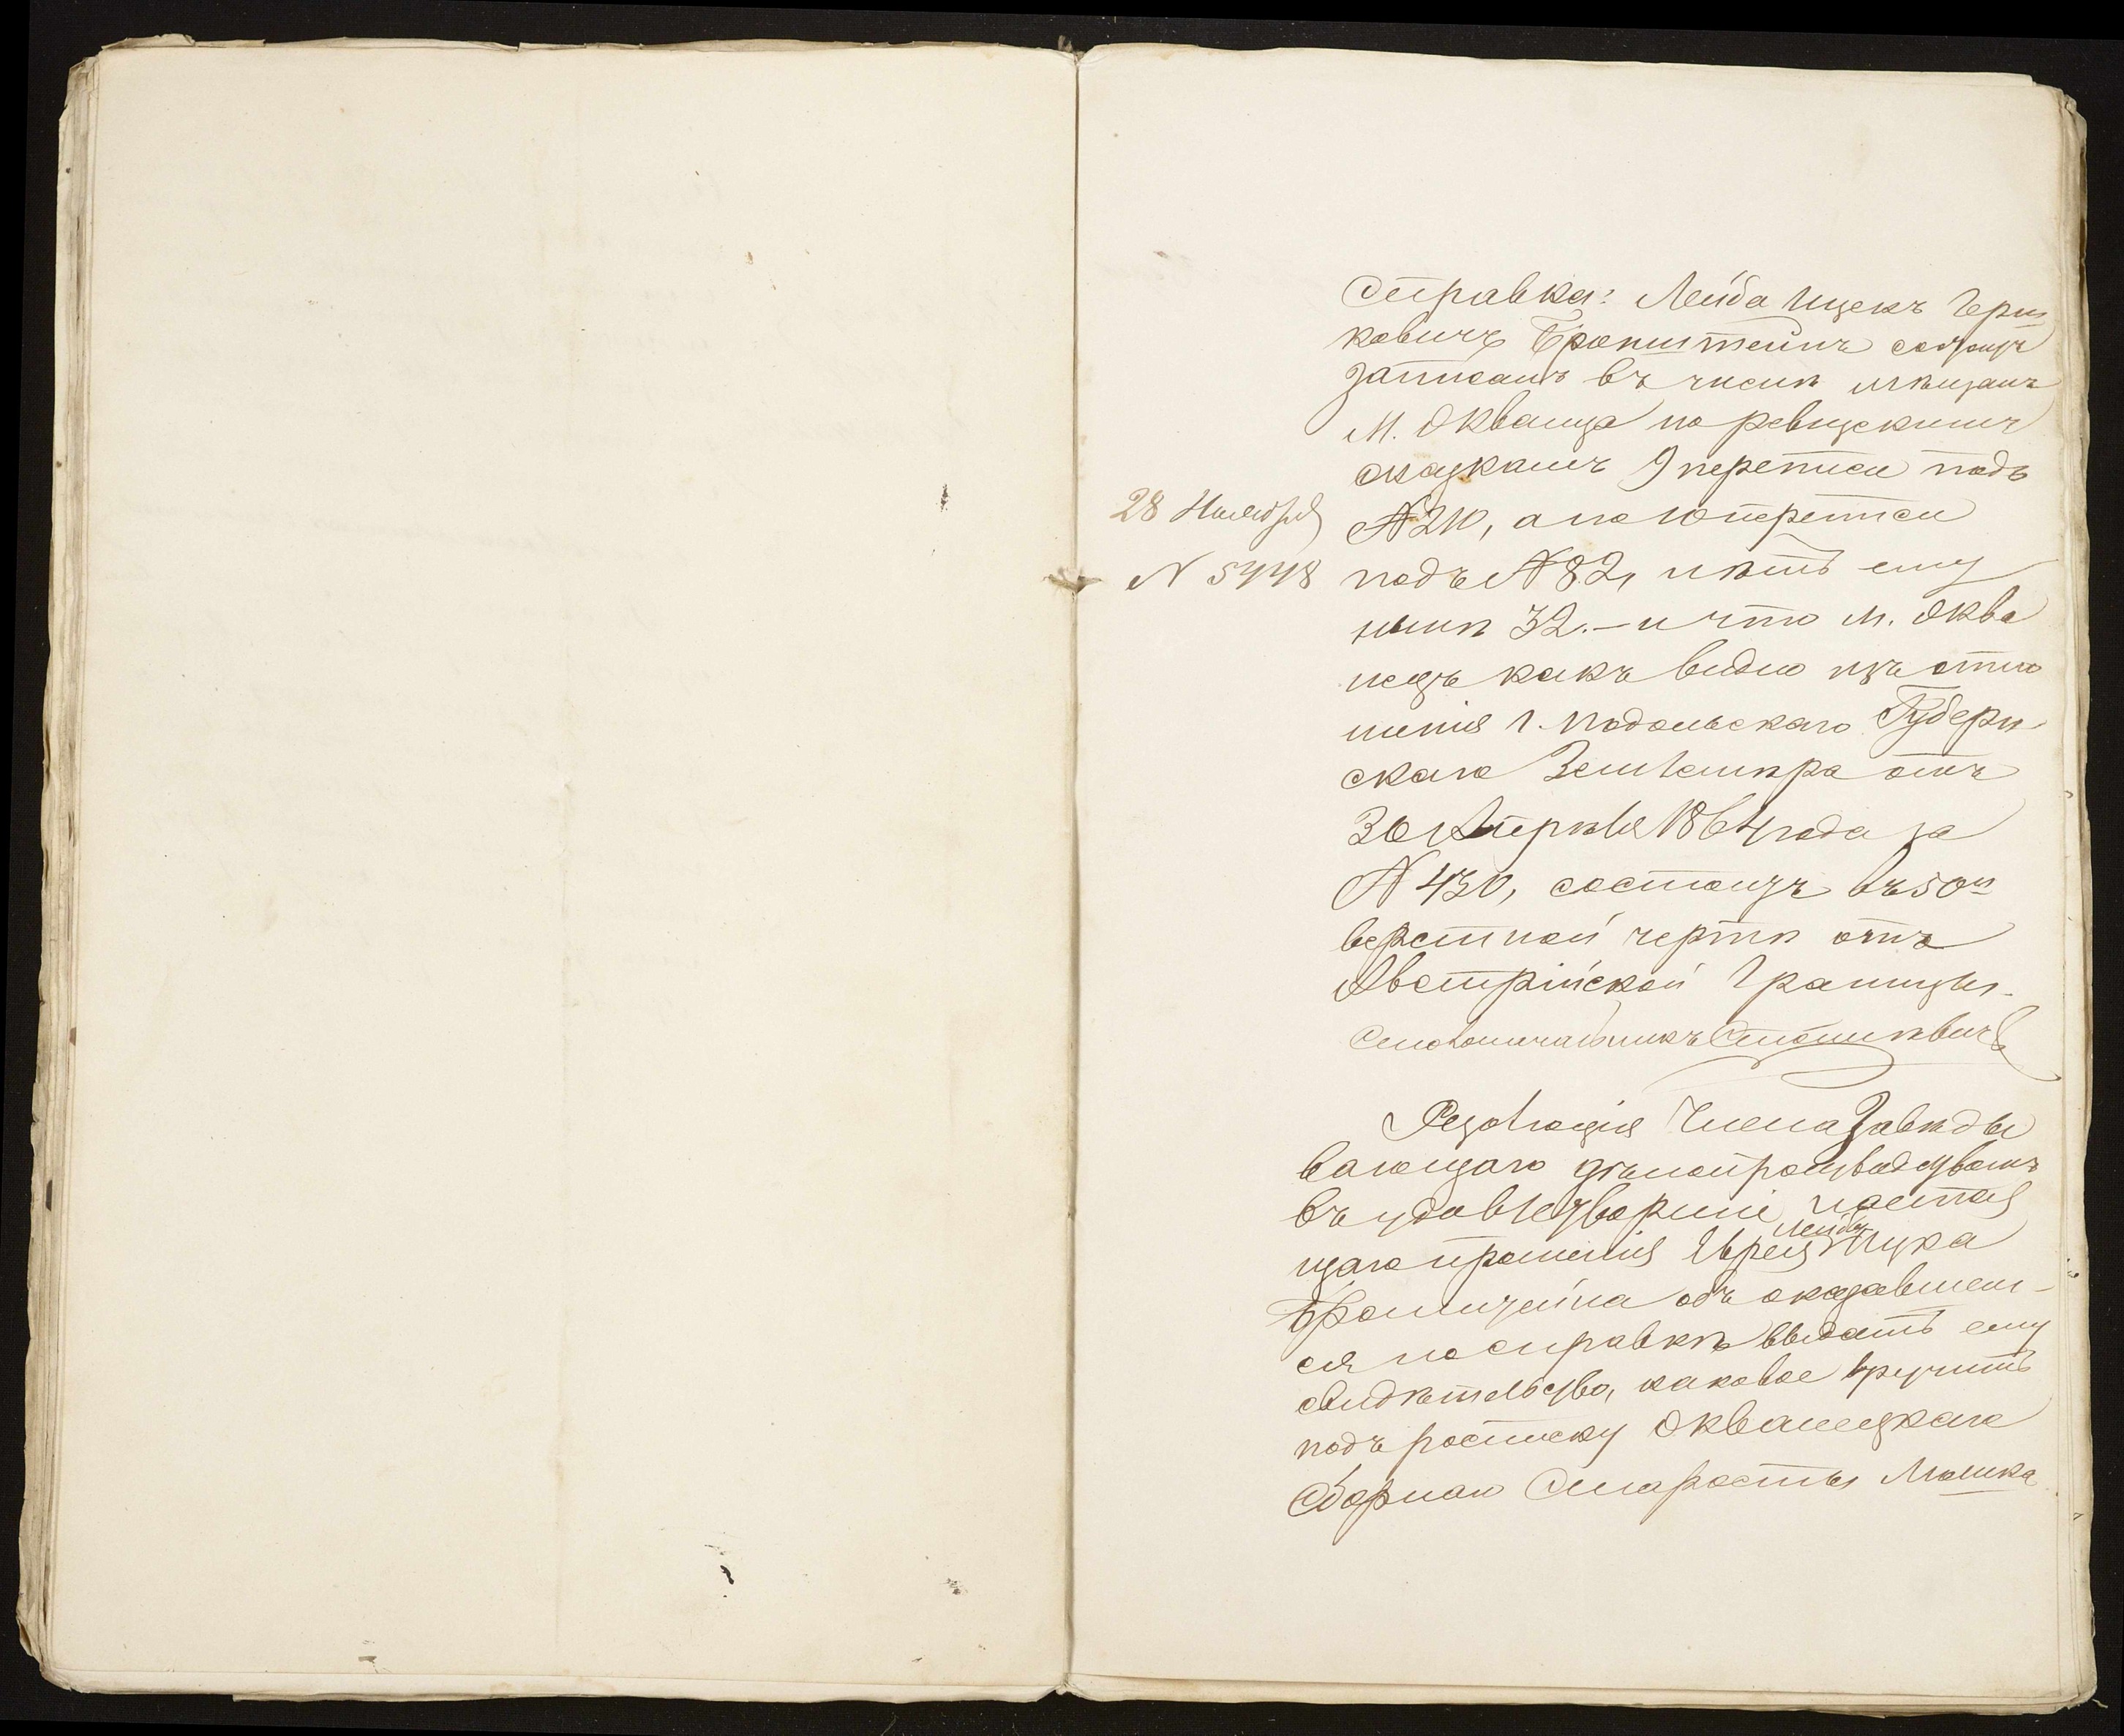 Справка: Лейба Ицекъ Герш
ковичъ Бронштейнъ состоитъ
записанъ въ числѣ мѣщанъ
М. Окванца по ревизскимъ
сказкамъ 9 переписи подъ
№ 210, а по 10 переписи
28 Ноября
№ 5448
подъ № 82, лѣтъ ему
нынѣ 32. – и что М. Оква
нецъ какъ видно изъ отно
шенія Г. Подольскаго Губерн
скаго Землемѣра отъ
30 Апрѣля 1864 года за
№ 430, состоитъ въ 50и
верстной чертѣ отъ
Австрійской Границы.
Столоначальникъ
Резолюція Члена Завѣды
вающаго дѣлопроизводствомъ
въ удовлетвореніе настоя
щаго прошенія Еврея Лейбы Ицка
Бронштейна объ оказавшем-
ся по справкѣ выдать ему
свидѣтельство, каковое вручить
подъ росписку Окванецкаго
Сборнаго Старосты Мошка